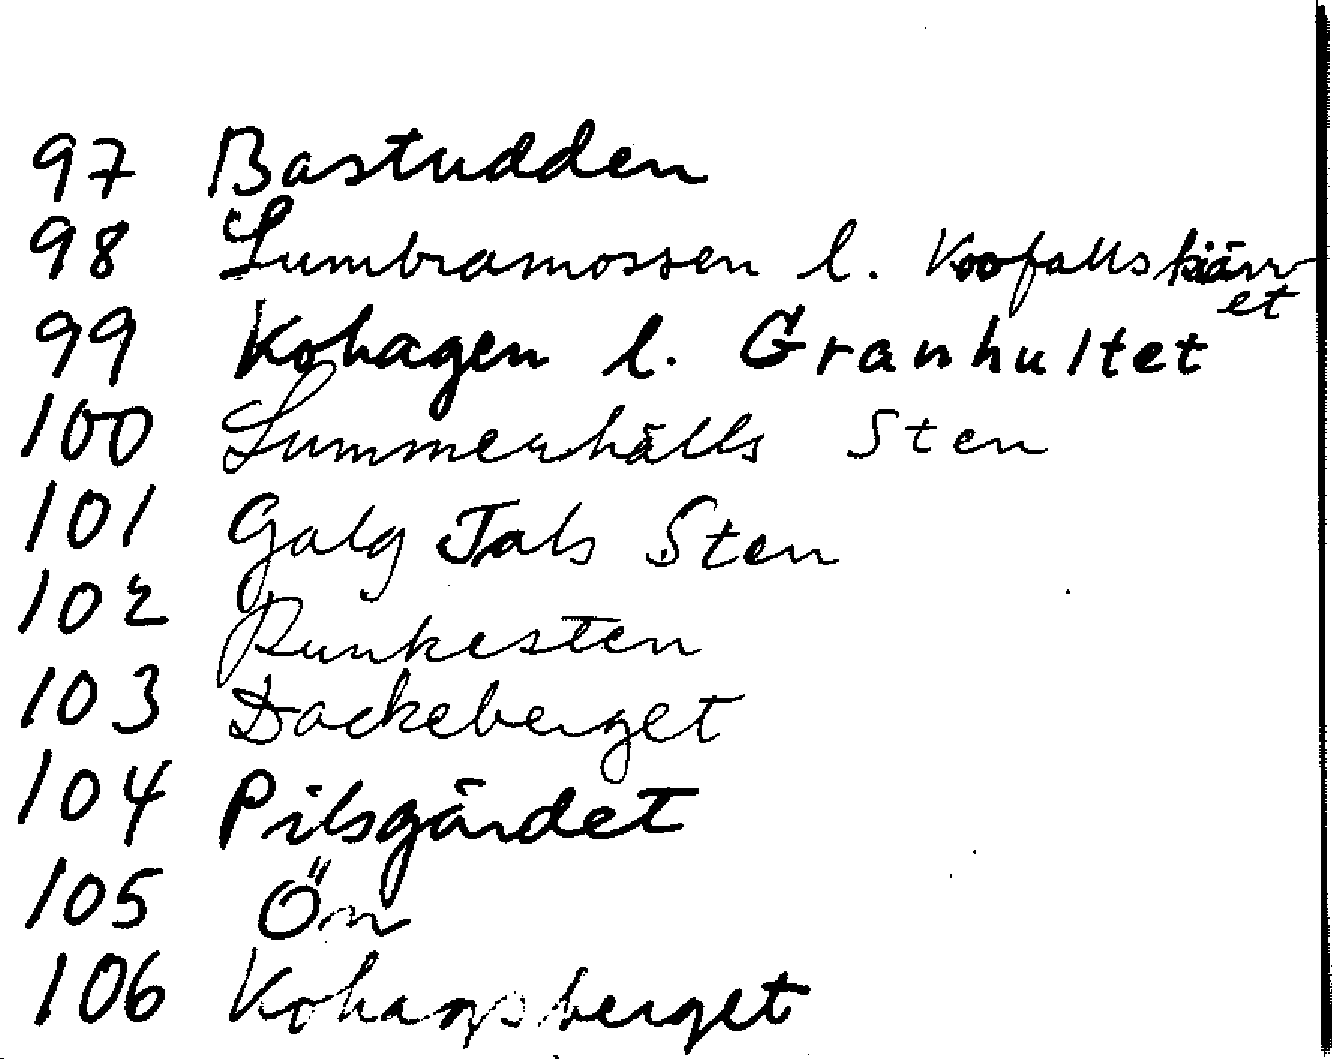 97 Bastudden
98 Lumbramossen l. Kofallskärr
et
99 Kohagen l. Granhultet
100 Lummerhälls Sten
101 Galg Jals Sten
102 Runkesten
103 Dackeberget
104 Pilsgärdet
105 Ön
106 Kohagsberget